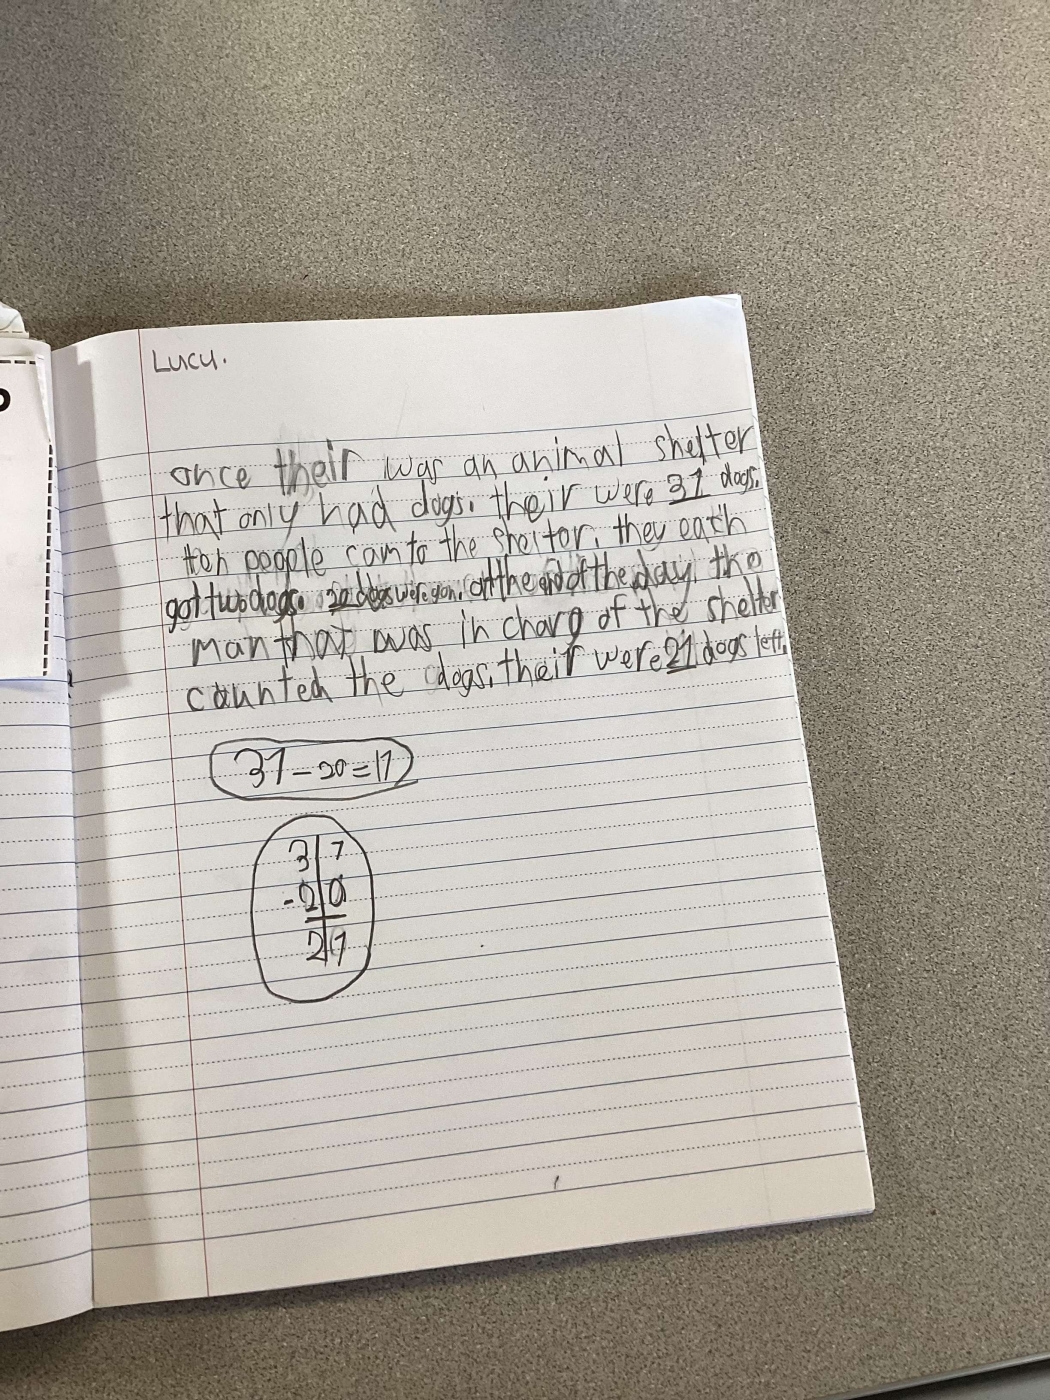 Lucy.
once their was an animal shelter
that only had dogs. their were 31 dogs.
ten people cam to the shelter. they each
got two dogs. 20 dogs were gon. at the end of the day the
man that was in charg of the shelter
counted the dogs. their were 21 dogs left.
31 - 20 = 17
3 7
- 2 0
2 1